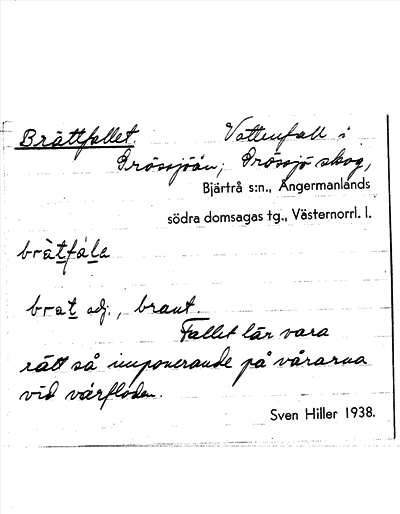 Brattfallet. Vattenfall i
Grössjöån; Grössjö skog,
Bjärtrå s:n., Ångermanlands
södra domsagas tg., Västernorrl. l.
bràtfála
brat adj., brant.
Fallet lär vara
rätt så imponerande på vårarna
vid vårfloden.
Sven Hiller 1938.